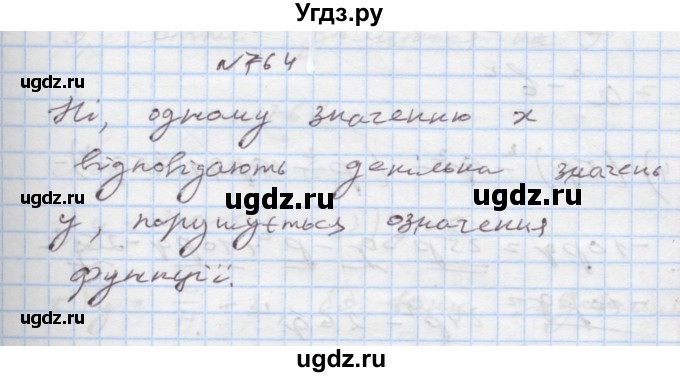 Угдз.ру
№764
ugdz.ru ugdz.ru
Ні, одному значенню х
відповідають декілька значень
ugdz.ru ugdz.ru
у, порушується означення
ugdz.ru
функції.
ugdz.ru
ugdz.ru